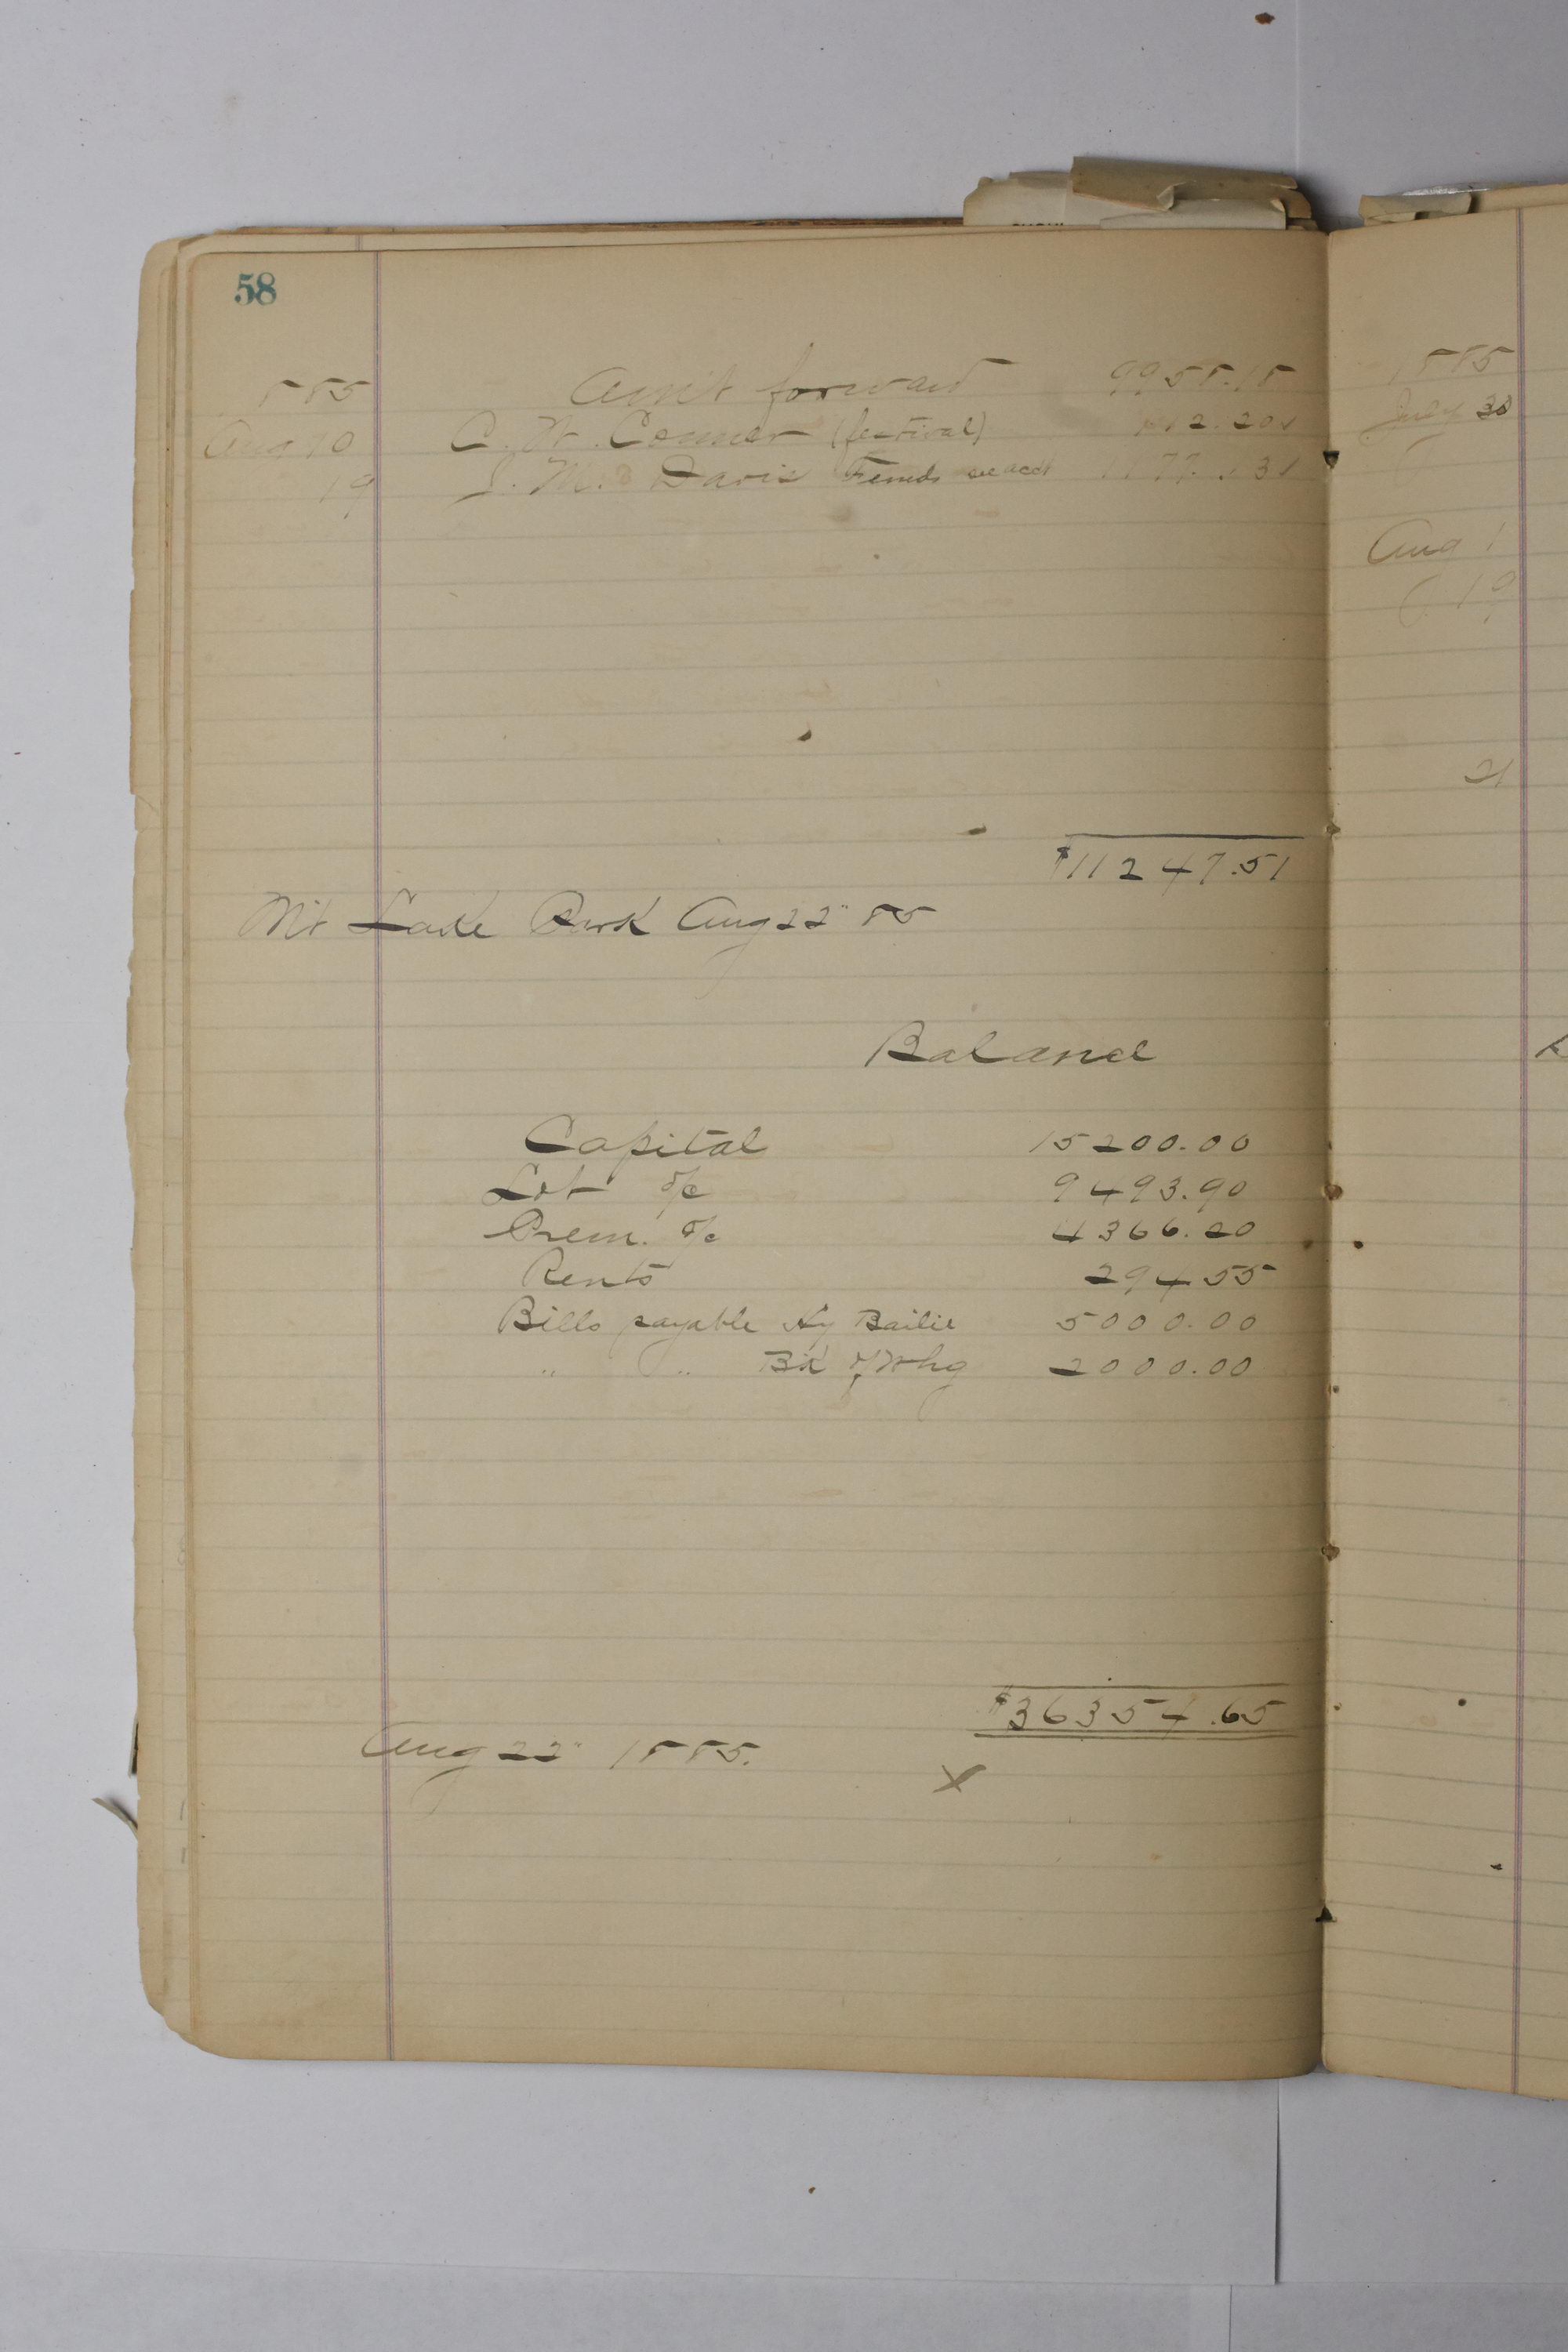 58
1885 Am't forward 9958.18
Aug 10 C. W. Conner (festival) 112.20
19 J. M. Davis Funds see acct 1177.13
$11247.51
Mt Lake Park Aug 22" 85
Balance
Capital 15200.00
Lot a/c 9493.90
Prem. a/c 4366.20
Rents 294.55
Bills payable Hy Bailie 5000.00
" " Bk of Whg 2000.00
$36354.65
Aug 22" 1885.
X
1885
July 30
Aug 1
19
21